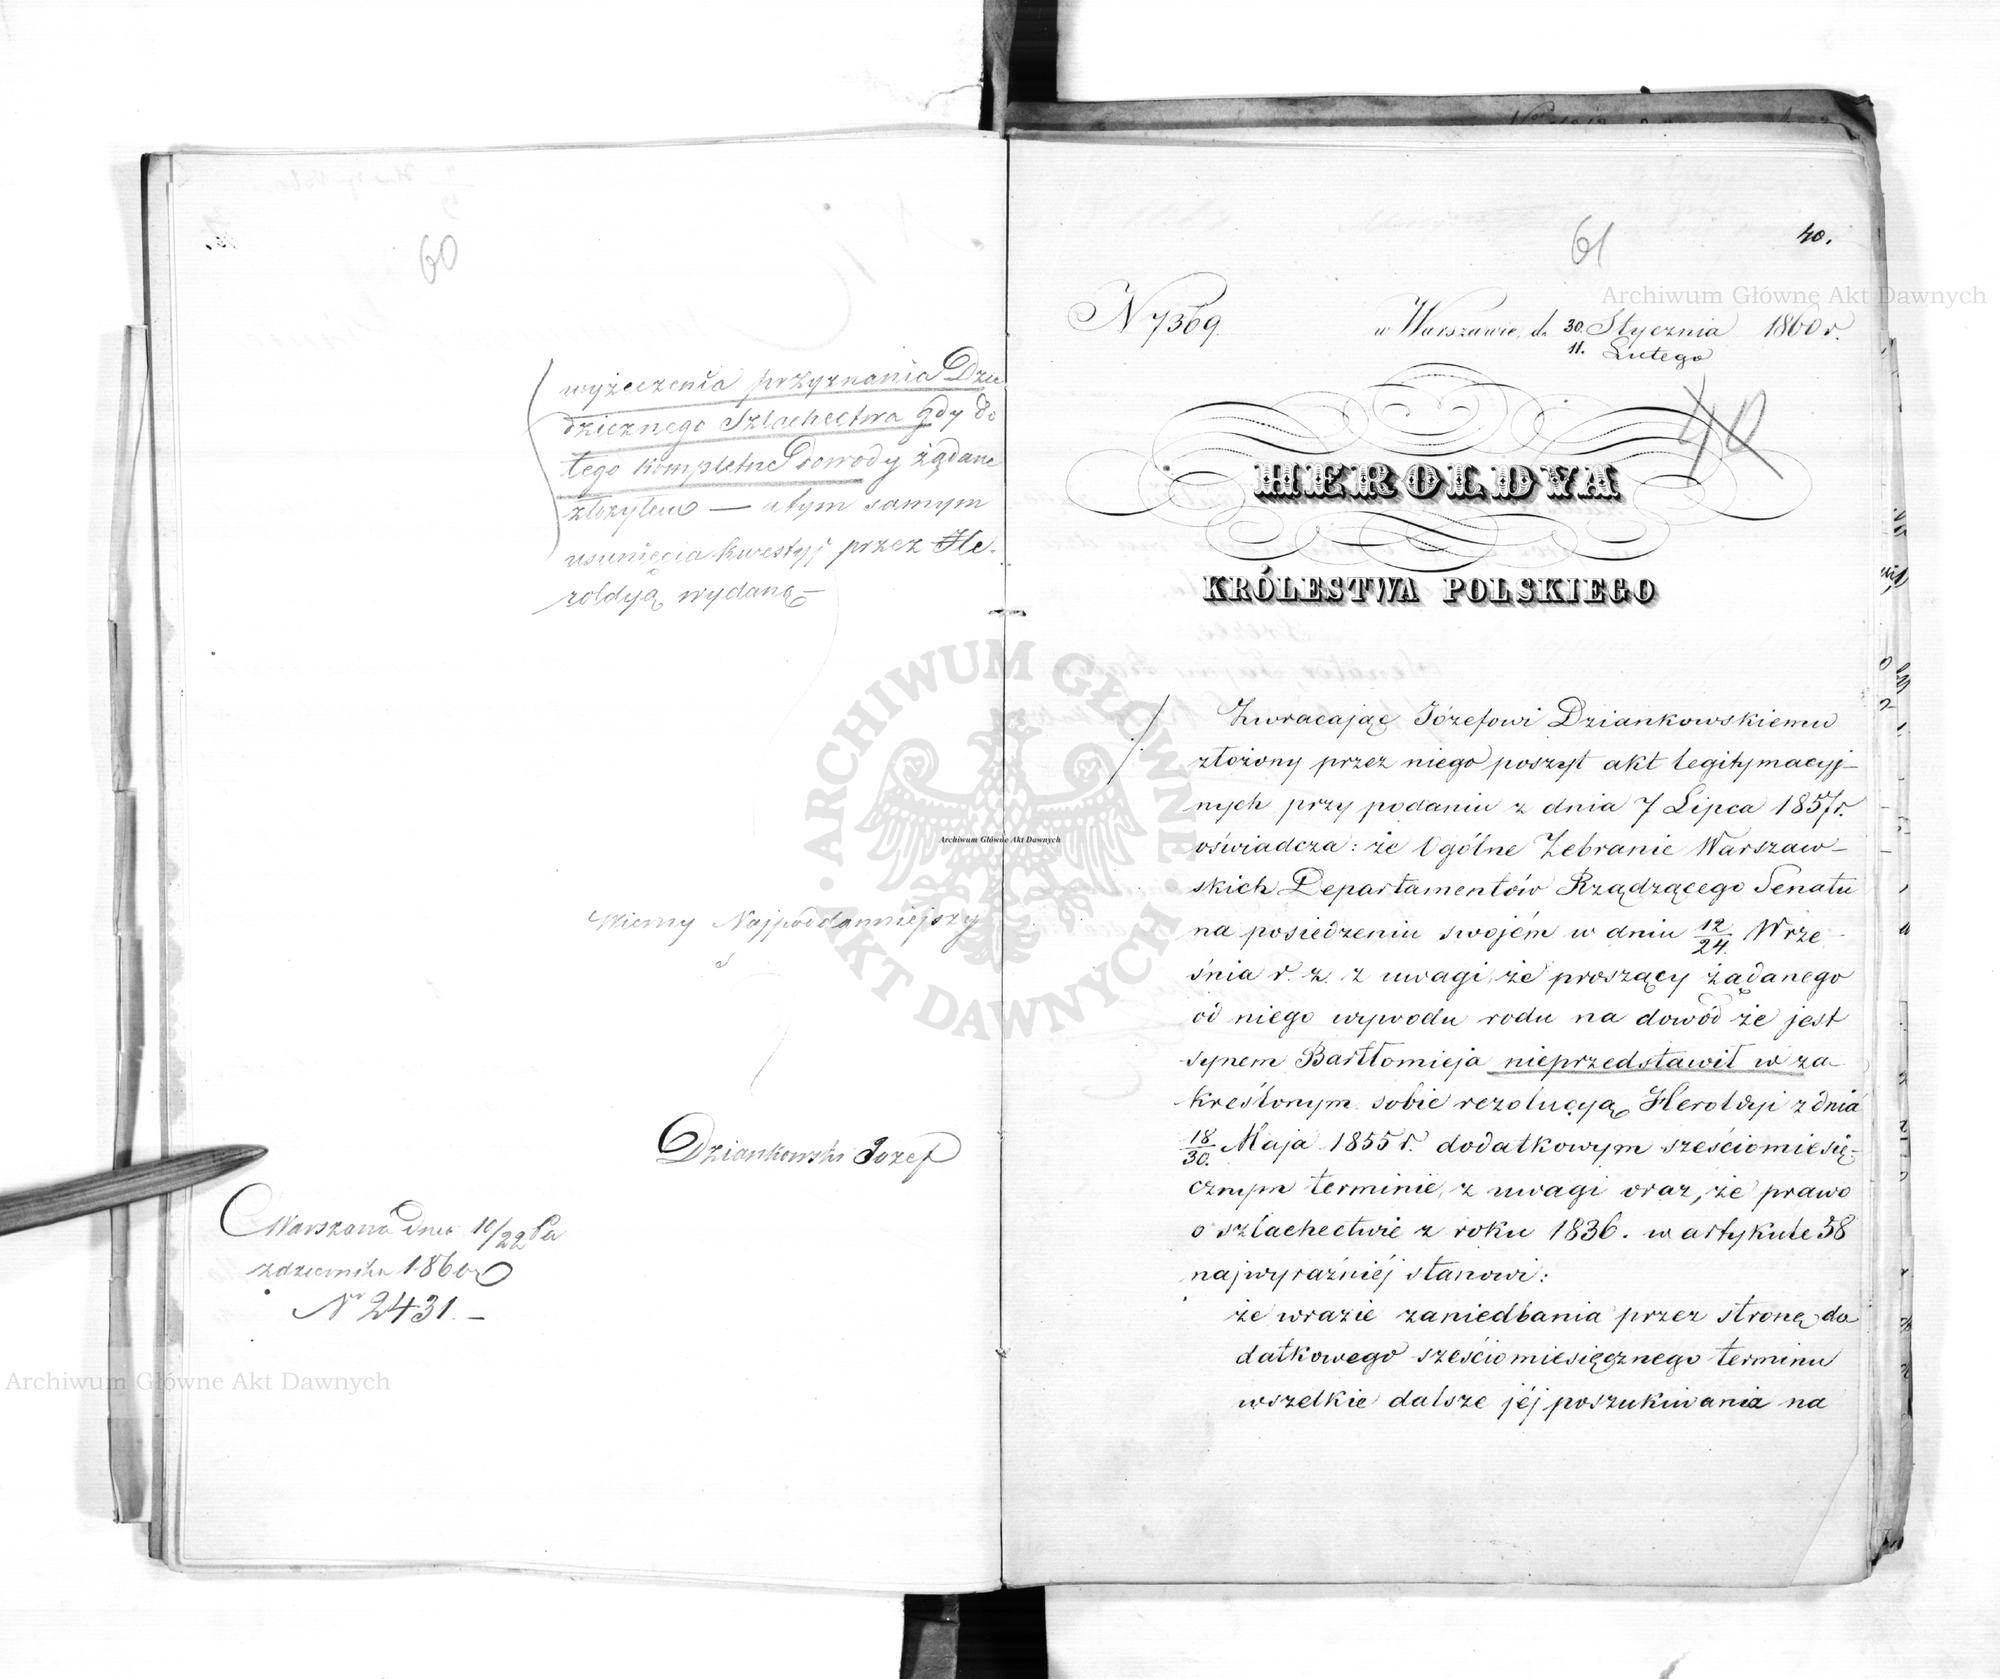 60
wyżeczenia przyznania Dzie
dzicznego Szlachectwa gdy do
tego kompletne dowody żądane
złożyłem — a tym samym
usunięcia kwestyj przez He-
roldyą wydaną —
Wierny Najpoddanniejszy
Dziankowski Jozef
Warszawa Dnia 10/22 Pa
zdziernika 1860 r
Nr 2431. —
61
40.
N 7369.
w Warszawie, d. 30. Stycznia 1860 r.
11. Lutego
40
HEROLDYA
KRÓLESTWA POLSKIEGO
Zwracając Józefowi Dziankowskiemu
złożony przez niego poszyt akt legitymacyj-
nych przy podaniu z dnia 7 Lipca 1857 r.
oświadcza: że Ogólne Zebranie Warszaw-
skich Departamentów Rządzącego Senatu
na posiedzeniu swojém w dniu 12/24. Wrze-
śnia r. z. z uwagi, że proszący żądanego
od niego wywodu rodu na dowód że jest
synem Bartłomieja nieprzedstawił w za-
kreślonym sobie rezolucyą Heroldyi z dnia
18/30. Maja 1855 r. dodatkowym sześciomiesię-
cznym terminie, z uwagi oraz, że prawo
o szlachectwie z roku 1836. w artykule 58
najwyraźniéj stanowi:
że w razie zaniedbania przez stronę do
datkowego sześciomiesięcznego terminu
wszelkie dalsze jéj poszukiwania na
Archiwum Główne Akt Dawnych
Archiwum Główne Akt Dawnych
Archiwum Główne Akt Dawnych
ARCHIWUM GŁÓWNE AKT DAWNYCH